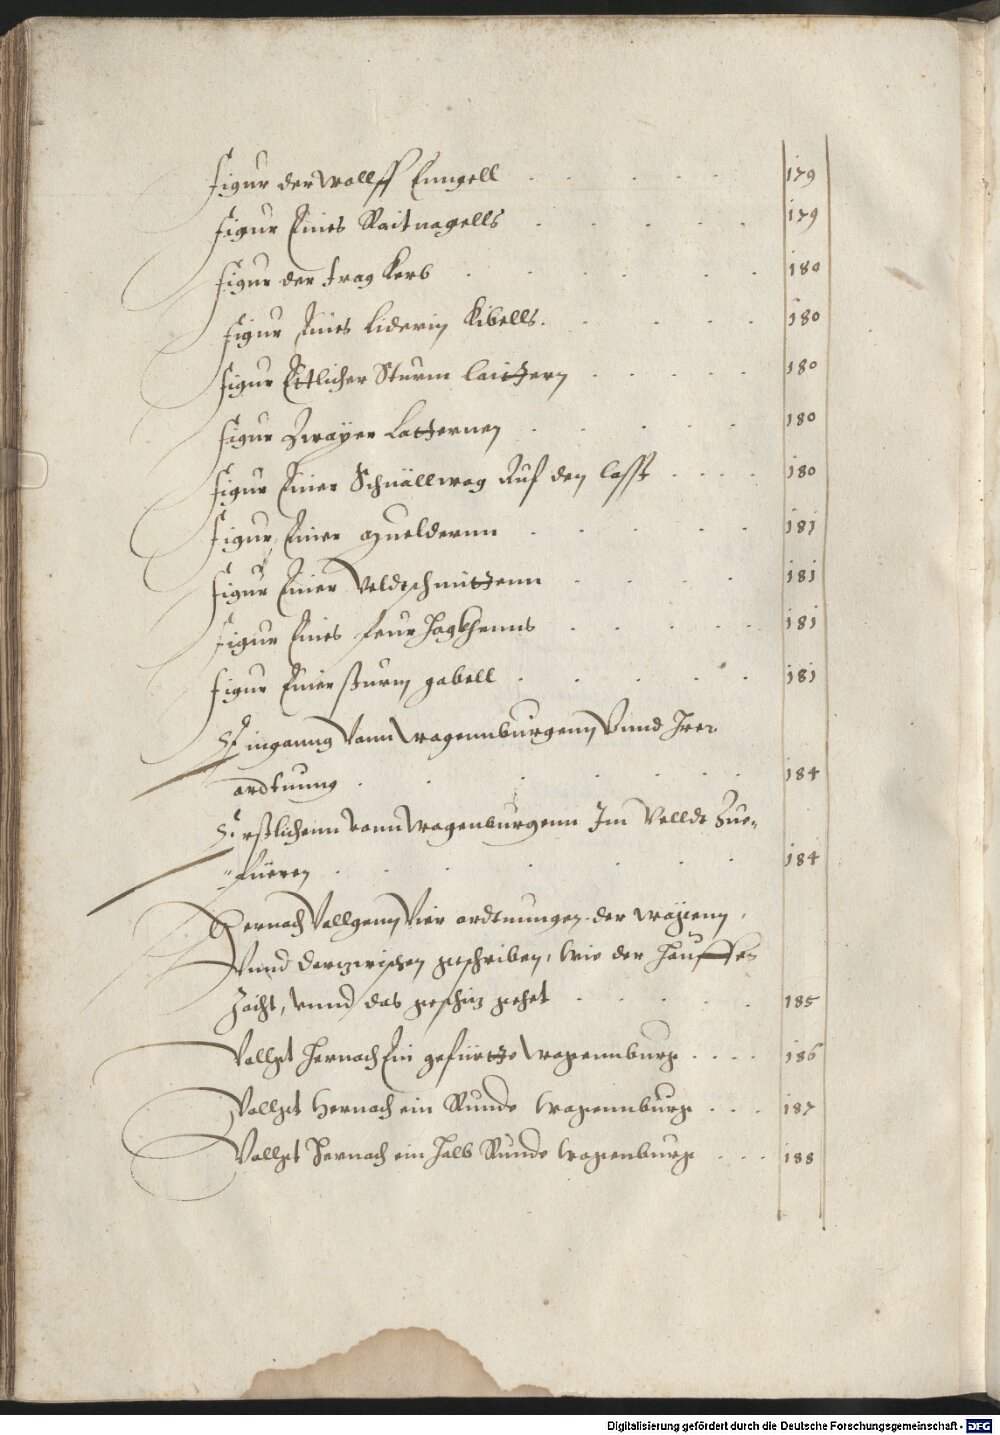 Figur der Wolff Enngell . . . . . . 179
Figur Eines Raitnagells . . . . . 179
Figur der trag Kerb . . . . . . 180
Figur Eines liderin Kibells . . . . . 180
Figur Ettlicher Sturm laittern . . . . . 180
Figur Zwayer Latternen . . . . . 180
Figur Einer Schnällwag Auf den lasst . . . . 180
Figur Einer Mueldernn . . . . . 181
Figur Einer Veldtschmittenn . . . . 181
Figur Eines Feur Hagkhenns . . . . . 181
Figur Einer sturm gabell . . . . . 181
Einganng Vonn Wagennburgenn Vnnd Irer
ordtnung . . . . . . . 184
Erstlichenn vonn Wagenburgenn Im Velldt Zue-
=füeren . . . . . . 184
Hernach Vollgenn Vier ordtnungen der Wägenn,
Vnnd darzwischen geschriben, wie der Hauffen
Zücht, vnnd das geschütz gehet . . . . . 185
Vollgt hernach Ein gefürtte Wagennburg . . . . 186
Vollgt Hernach ein Runde Wagennburg . . . 187
Vollgt Hernach ein halb Runde Wagenburg . . . 188
Digitalisierung gefördert durch die Deutsche Forschungsgemeinschaft - DFG